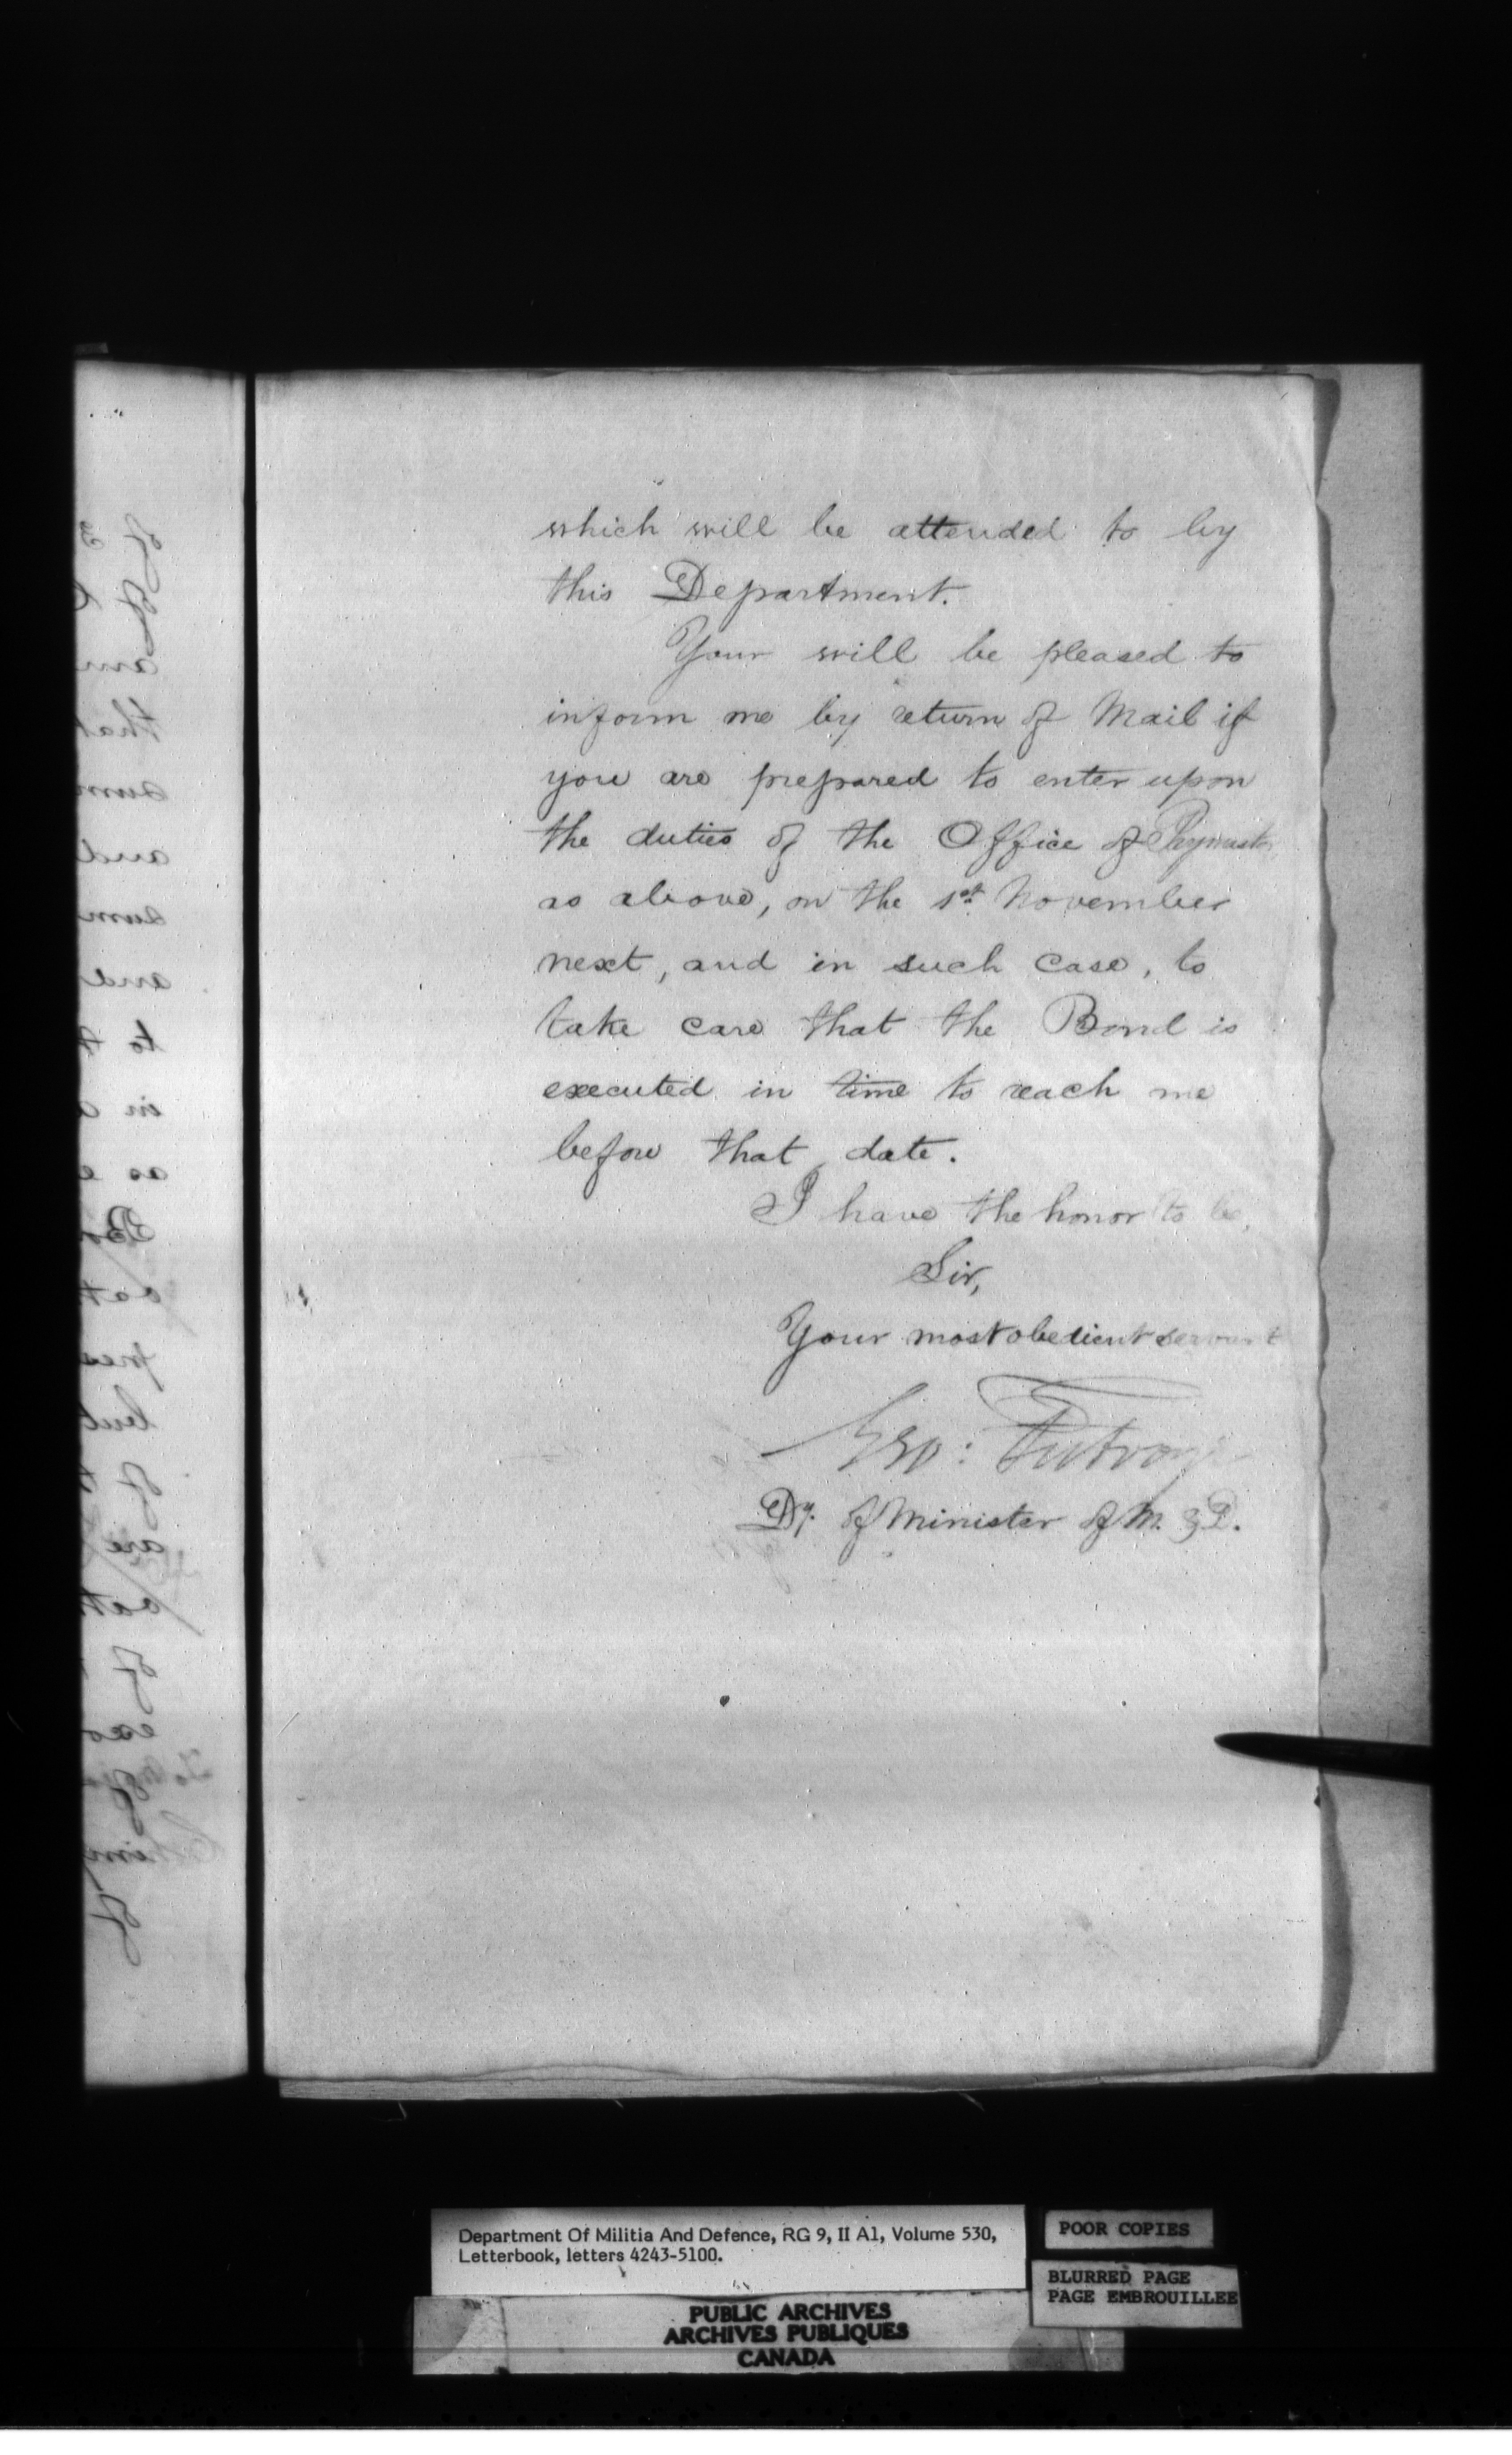 which will be attended to by
this Department.
Your will be pleased to
inform me by return of Mail if
you are prepared to enter upon
the duties of the Office of Paymaster
as above, on the 1st November
next, and in such case, to
take care that the Bond is
executed in time to reach me
before that date.
I have the honor to be,
Sir,
Your most obedient servant
Geo: Futvoye
Dy. of Minister of M. & D.
am
that
sum
and
sum
and
to
in
as
Bo
oat
pres
but
of
are
oat
of
exe
of
Department Of Militia And Defence, RG 9, II A1, Volume 530,
Letterbook, letters 4243-5100.
POOR COPIES
BLURRED PAGE
PAGE EMBROUILLEE
PUBLIC ARCHIVES
ARCHIVES PUBLIQUES
CANADA